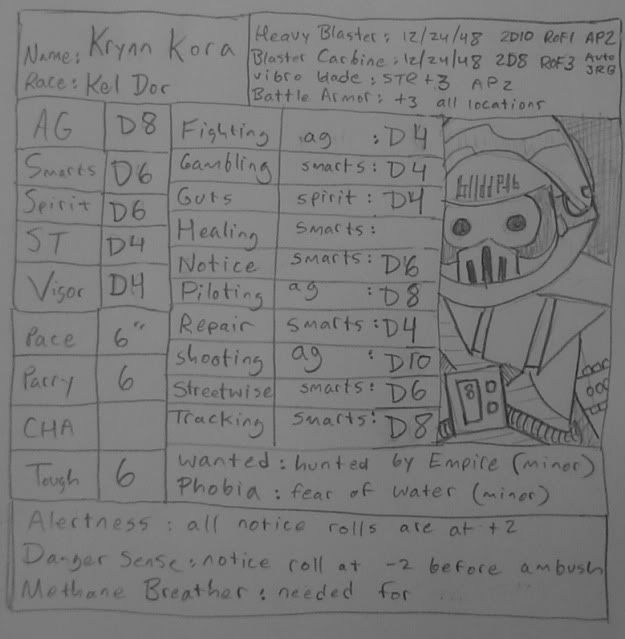 Name: Krynn Kora
Race: Kel Dor
Heavy Blaster: 12/24/48 2D10 RoF1 AP2
Blaster Carbine: 12/24/48 2D8 ROF3 Auto 3RB
vibro blade: STR +3 AP2
Battle Armor: +3 all locations
AG D8
Smarts D6
Spirit D6
ST D4
Vigor D4
Pace 6"
Parry 6
CHA
Tough 6
Fighting ag : D4
Gambling smarts: D4
Guts spirit: D4
Healing smarts:
Notice smarts: D6
Piloting ag : D8
Repair smarts: D4
shooting ag : D10
Streetwise smarts: D6
Tracking smarts: D8
8
wanted: hunted by Empire (minor)
Phobia: fear of water (minor)
Alertness: all notice rolls are at +2
Danger Sense: notice roll at -2 before ambush
Methane Breather: needed for ...